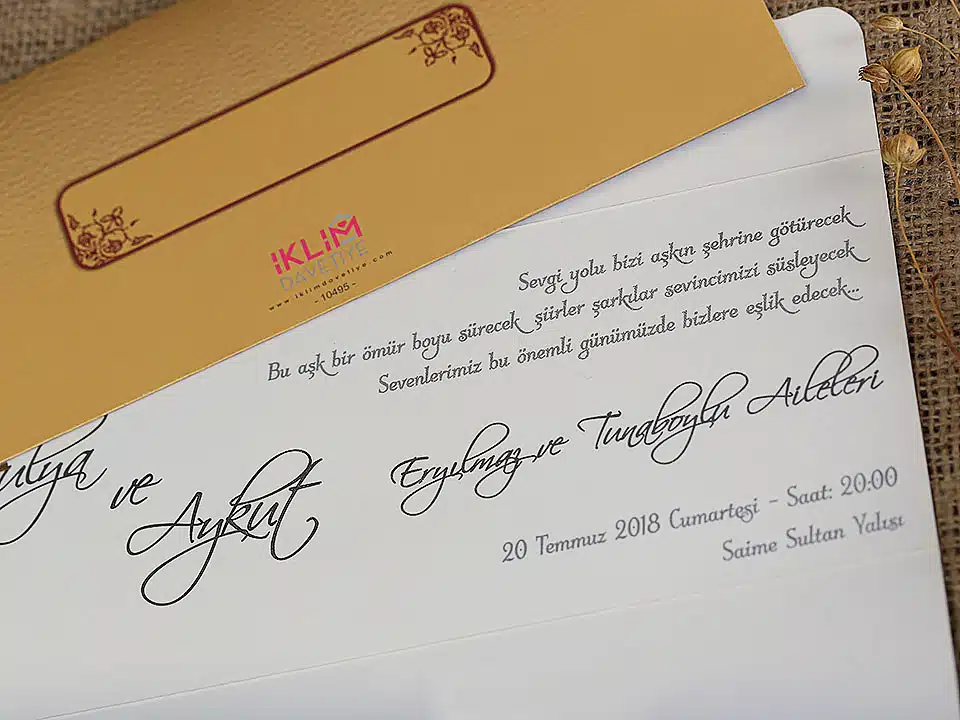 İKLİM
DAVETİYE
www.iklimdavetiye.com
- 10495 -
Sevgi yolu bizi aşkın şehrine götürecek
Bu aşk bir ömür boyu sürecek şiirler şarkılar sevincimizi süsleyecek
Sevenlerimiz bu önemli günümüzde bizlere eşlik edecek...
ve
Aykut
Eryılmaz ve Tunaboylu Aileleri
20 Temmuz 2018 Cumartesi - Saat: 20:00
Saime Sultan Yalısı